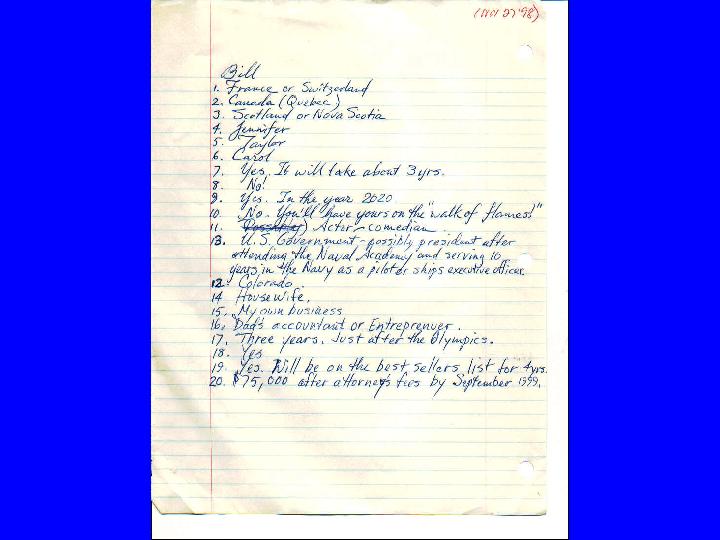 (Nov 27 '98)
Bill
1. France or Switzerland
2. Canada (Quebec)
3. Scotland or Nova Scotia
4. Jennifer
5. Taylor
6. Carol
7. Yes. It will take about 3 yrs.
8. No!
9. Yes. In the year 2020
10. No. You'll have yours on the "walk of flamess!"
11. Actor - comedian.
13. U.S. Government - possibly president after
attending the Naval Academy and serving 10
years in the Navy as a pilot or ships executive officer.
12. Colorado.
14 Housewife.
15. My own business
16. Dad's accountant or Entreprenuer.
17. Three years. Just after the Olympics.
18. Yes
19. Yes. Will be on the best sellers list for 4 yrs.
20. $75,000 after attorneys fees by September 1999.